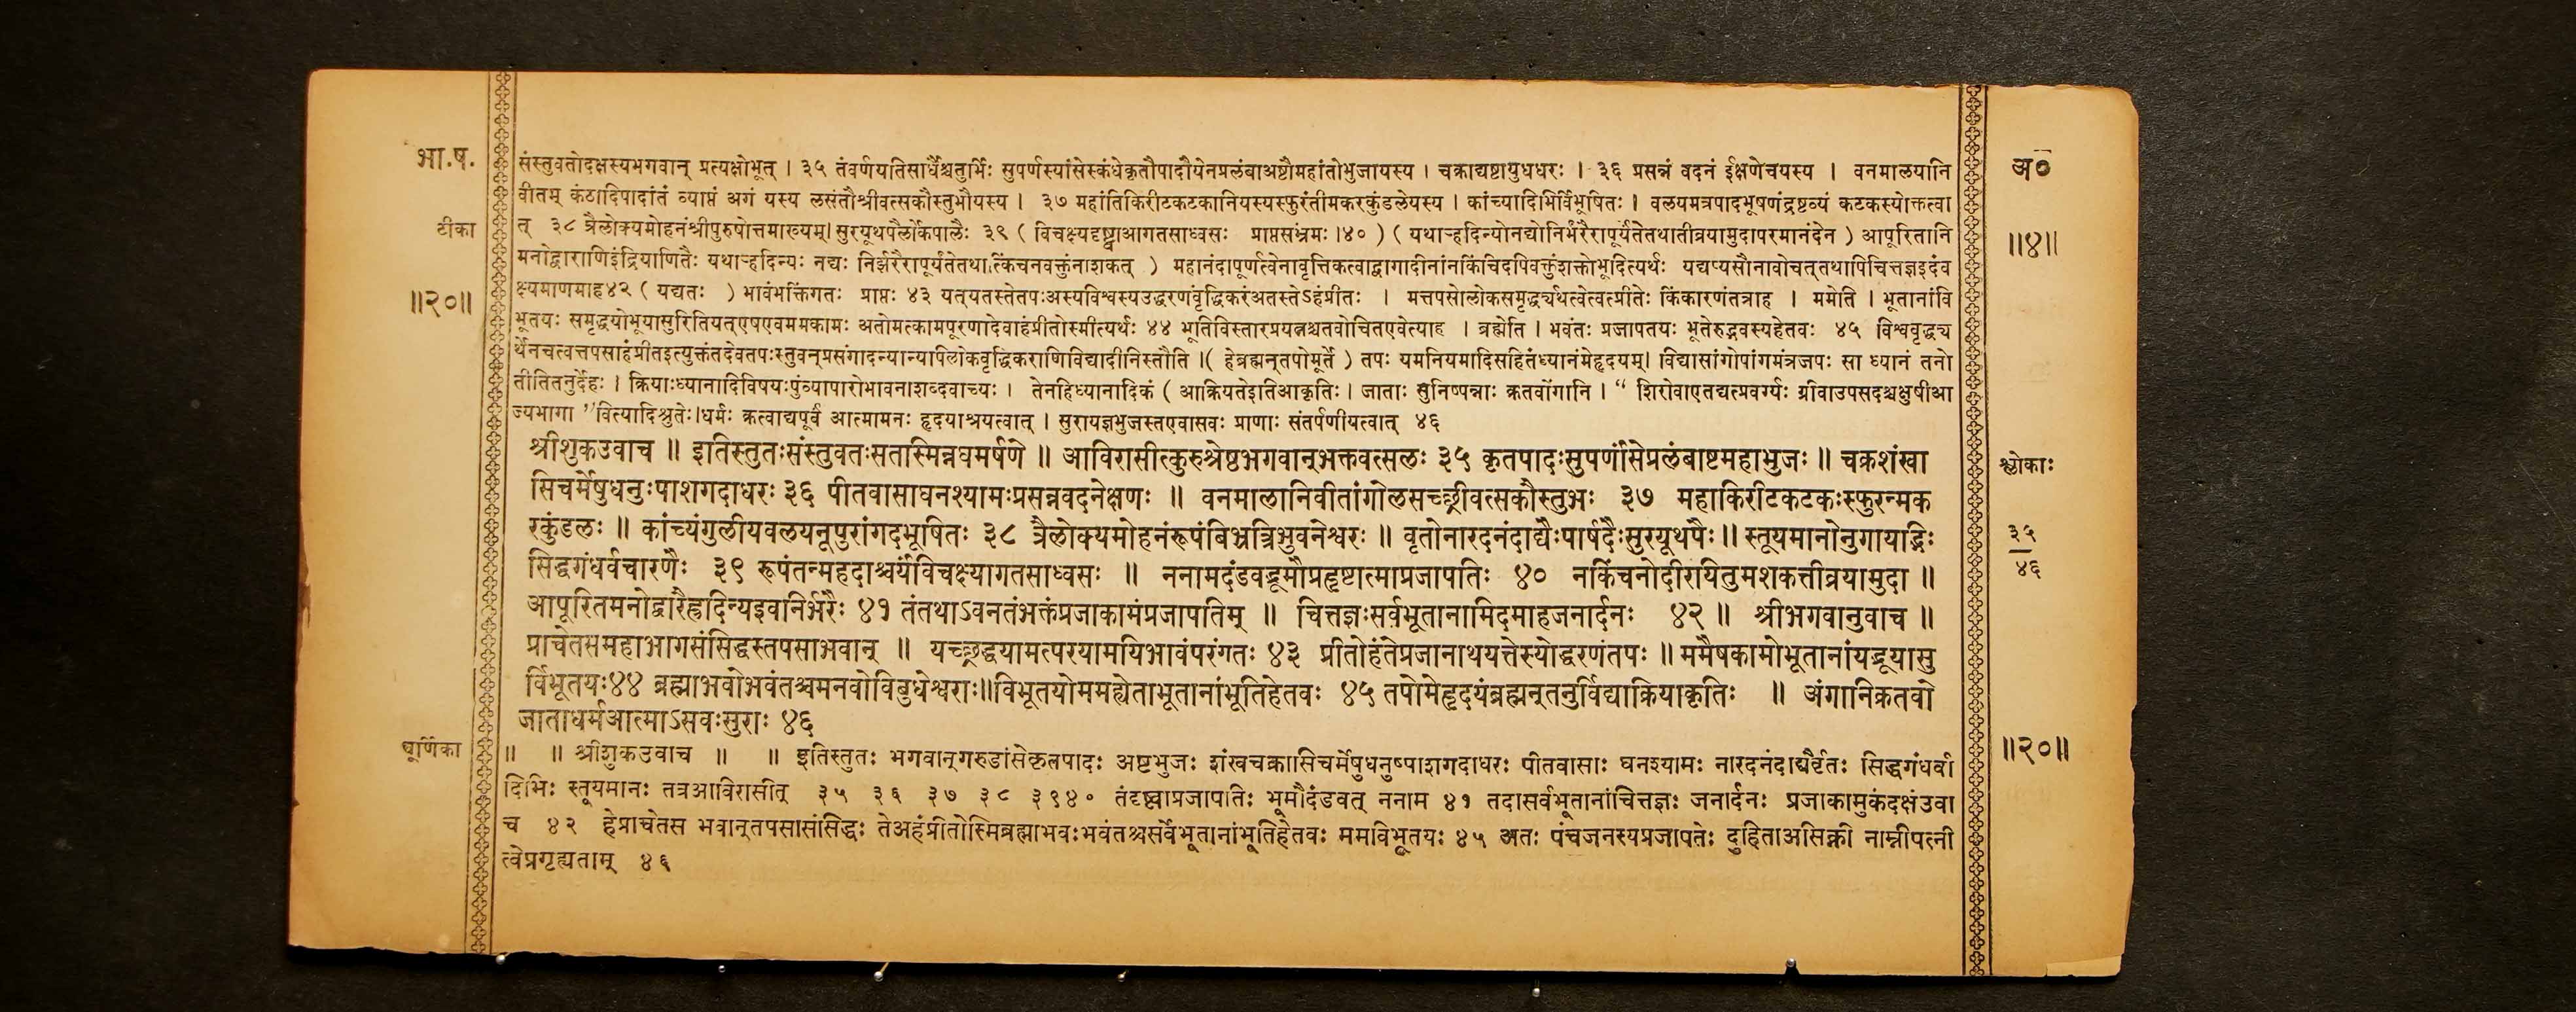 भा.ष.
टीका
॥२०॥
संस्तुवतोदक्षस्यभगवान् प्रत्यक्षोभूत् । ३५ तंवर्णयतिसार्धैश्चतुर्भिः सुपर्णस्यांसेस्कंधेकृतौपादौयेनप्रलंबाअष्टौमहांतोभुजायस्य । चक्राद्यष्टायुधधरः । ३६ प्रसन्नं वदनं ईक्षणेचयस्य । वनमालयानि
वीतम् कंठादिपादांतं व्याप्तं अगं यस्य लसंतौश्रीवत्सकौस्तुभौयस्य । ३७ महांतिकिरीटकटकानियस्यस्फुरंतीमकरकुंडलेयस्य । कांच्यादिभिर्विभूषितः । वलयमत्रपादभूषणंद्रष्टव्यं कटकस्योक्तत्वा
त् ३८ त्रैलोक्यमोहनंश्रीपुरुषोत्तमाख्यम्। सुरयूथपैर्लोकपालैः ३९ ( विचक्ष्यदृष्ट्वाआगतसाध्वसः प्राप्तसंभ्रमः ।४० ) ( यथाऱ्हदिन्योनद्योनिर्भरैरापूर्यंतेतथातीव्रयामुदापरमानंदेन ) आपूरितानि
मनोद्वाराणिइंद्रियाणितैः यथाऱ्हदिन्यः नद्यः निर्झरैरापूर्यंतेतथा।त्किंचनवक्तुंनाशकत् ) महानंदापूर्णत्वेनावृत्तिकत्वाद्वागादीनांनकिंचिदपिवक्तुंशक्तोभूदित्यर्थः यद्यप्यसौनावोचत्तथापिचित्तज्ञइदंव
क्ष्यमाणमाह४२ ( यद्यतः ) भावंभक्तिंगतः प्राप्तः ४३ यत्यतस्तेतपःअस्यविश्वस्यउद्धरणंवृद्धिकरंअतस्तेऽहंप्रीतः । मत्तपसोलोकसमृद्ध्यर्थत्वेत्वत्प्रीतेः किंकारणंतत्राह । ममेति । भूतानांवि
भूतयः समृद्धयोभूयासुरितियत्एषएवममकामः अतोमत्कामपूरणादेवाहंप्रीतोस्मीत्यर्थः ४४ भूतिविस्तारप्रयत्नश्चतवोचितएवेत्याह । ब्रह्मेति । भवंतः प्रजापतयः भूतेरुद्भवस्यहेतवः ४५ विश्ववृद्ध्य
र्थेनचत्वत्तपसाहंप्रीतइत्युक्तंतदेवतपःस्तुवन्प्रसंगादन्यान्यपिलोकवृद्धिकराणिविद्यादीनिस्तौति ।( हेब्रह्मन्तपोमूर्ते ) तपः यमनियमादिसहितंध्यानंमेहृदयम्। विद्यासांगोपांगमंत्रजपः सा ध्यानं तनो
तीतितनुर्देहः । क्रियाःध्यानादिविषयःपुंव्यापारोभावनाशब्दवाच्यः । तेनहिध्यानादिकं ( आक्रियतेइतिआकृतिः । जाताः सुनिष्पन्नाः क्रतवोंगानि । “ शिरोवाएतद्यत्प्रवर्ग्यः ग्रीवाउपसदश्चक्षुषीआ
ज्यभागा ”वित्यादिश्रुतेः।धर्मः क्रत्वाद्यपूर्वं आत्मामनः हृदयाश्रयत्वात् । सुरायज्ञभुजस्तएवासवः प्राणाः संतर्पणीयत्वात् ४६
श्रीशुकउवाच ॥ इतिस्तुतःसंस्तुवतःसतास्मिन्नघमर्षणे ॥ आविरासीत्कुरुश्रेष्ठभगवान्भक्तवत्सलः ३५ कृतपादःसुपर्णांसेप्रलंबाष्टमहाभुजः ॥ चक्रशंखा
सिचर्मेषुधनुःपाशगदाधरः ३६ पीतवासाघनश्यामःप्रसन्नवदनेक्षणः ॥ वनमालानिवीतांगोलसच्छ्रीवत्सकौस्तुभः ३७ महाकिरीटकटकःस्फुरन्मक
रकुंडलः ॥ कांच्यंगुलीयवलयनूपुरांगदभूषितः ३८ त्रैलोक्यमोहनंरूपंबिभ्रत्रिभुवनेश्वरः ॥ वृतोनारदनंदाद्यैःपार्षदैःसुरयूथपैः॥ स्तूयमानोनुगायद्भिः
सिद्धगंधर्वचारणैः ३९ रूपंतन्महदाश्चर्यंविचक्ष्यागतसाध्वसः ॥ ननामदंडवद्भूमौप्रहृष्टात्माप्रजापतिः ४० नकिंचनोदीरयितुमशकत्तीव्रयामुदा ॥
आपूरितमनोद्वारैर्ह्रदिन्यइवनिर्भरैः ४१ तंतथाऽवनतंभक्तंप्रजाकामंप्रजापतिम् ॥ चित्तज्ञःसर्वभूतानामिदमाहजनार्दनः ४२ ॥ श्रीभगवानुवाच ॥
प्राचेतसमहाभागसंसिद्धस्तपसाभवान् ॥ यच्छ्रद्धयामत्परयामयिभावंपरंगतः ४३ प्रीतोहंतेप्रजानाथयत्तेस्योद्धरणंतपः ॥ ममैषकामोभूतानांयद्भूयासु
र्विभूतयः४४ ब्रह्माभवोभवंतश्चमनवोविबुधेश्वराः॥विभूतयोममह्येताभूतानांभूतिहेतवः ४५ तपोमेहृदयंब्रह्मन्तनुर्विद्याक्रियाकृतिः ॥ अंगानिक्रतवो
जाताधर्मआत्माऽसवःसुराः ४६
चूर्णिका
॥ ॥ श्रीशुकउवाच ॥ ॥ इतिस्तुतः भगवान्गरुडांसेकृतपादः अष्टभुजः शंखचक्रासिचर्मेषुधनुष्पाशगदाधरः पीतवासाः घनश्यामः नारदनंदाद्यैर्वृतः सिद्धगंधर्वा
दिभिः स्तूयमानः तत्रआविरासीत् ३५ ३६ ३७ ३८ ३९४० तंदृष्ट्वाप्रजापतिः भूमौदंडवत् ननाम ४१ तदासर्वभूतानांचित्तज्ञः जनार्दनः प्रजाकामुकंदक्षंउवा
च ४२ हेप्राचेतस भवान्तपसासंसिद्धः तेअहंप्रीतोस्मिब्रह्माभवःभवंतश्चसर्वेभूतानांभूतिहेतवः ममविभूतयः ४५ अतः पंचजनस्यप्रजापतेः दुहिताअसिक्नी नाम्नीपत्नी
त्वेप्रगृह्यताम् ४६
अ०
॥४॥
श्लोकाः
३५
४६
॥२०॥